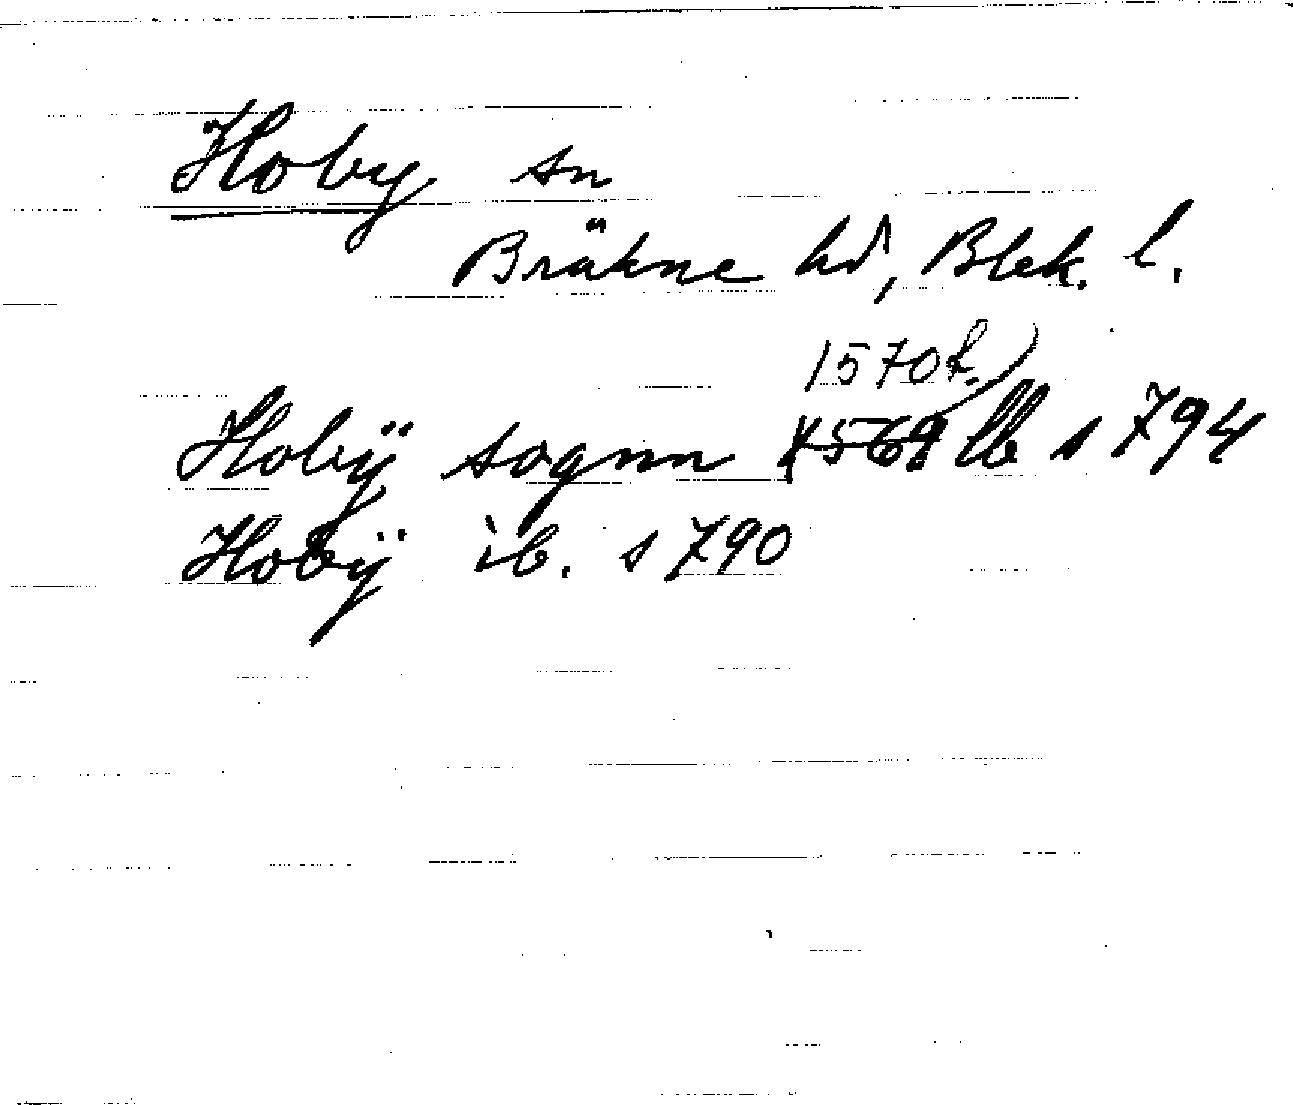 Hoby sn
Bräkne hd, Blek. l.
1570 f.)
Hobÿ sognn 1569 lb s 794
Hobÿ ib. s 790